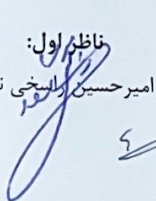 ناظر اول:
امیرحسین راسخی